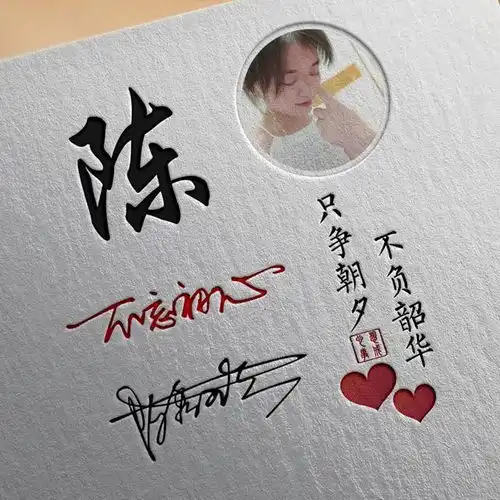 陈
不忘初心
只争朝夕
不负韶华